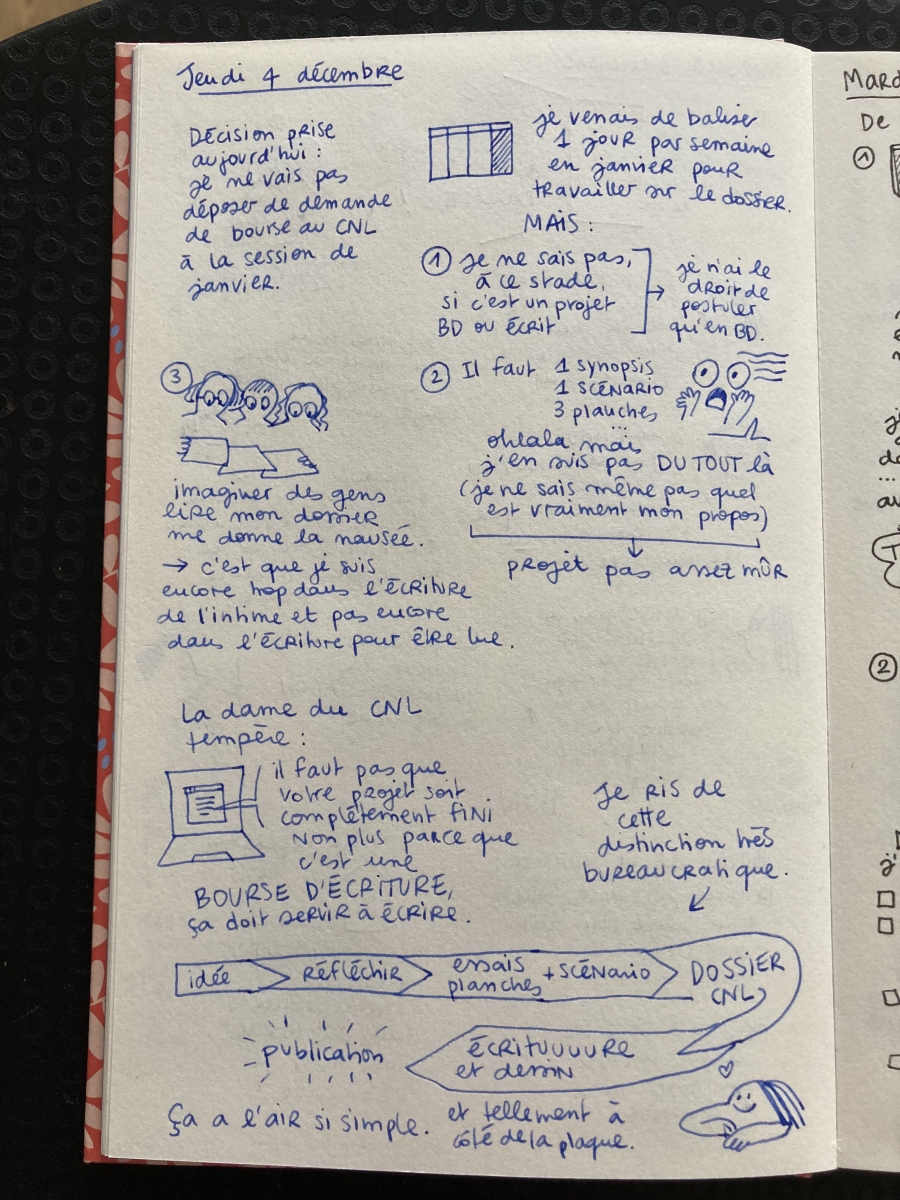 Jeudi 4 décembre
Décision prise
aujourd'hui :
je ne vais pas
déposer de demande
de bourse au CNL
à la session de
janvier.
je venais de baliser
1 jour par semaine
en janvier pour
travailler sur le dossier.
MAIS :
1 je ne sais pas,
à ce stade,
si c'est un projet
BD ou écrit
→ je n'ai le
droit de
postuler
qu'en BD.
2 Il faut 1 synopsis
1 scénario
3 planches
...
ohlala mais
j'en suis pas DU TOUT là
(je ne sais même pas quel
est vraiment mon propos)
projet pas assez mûr
3
imaginer des gens
lire mon dossier
me donne la nausée.
→ c'est que je suis
encore trop dans l'écriture
de l'intime et pas encore
dans l'écriture pour être lue.
La dame du CNL
tempère :
il faut pas que
votre projet soit
complètement fini
non plus parce que
c'est une
BOURSE D'ÉCRITURE,
ça doit servir à écrire.
Je ris de
cette
distinction très
bureaucratique.
idée
réfléchir
essais
planches
+ scénario
DOSSIER
CNL
ÉCRITUUUURE
et dessin
publication
Ça a l'air si simple.
et tellement à
côté de la plaque.
Mard
De
1
2